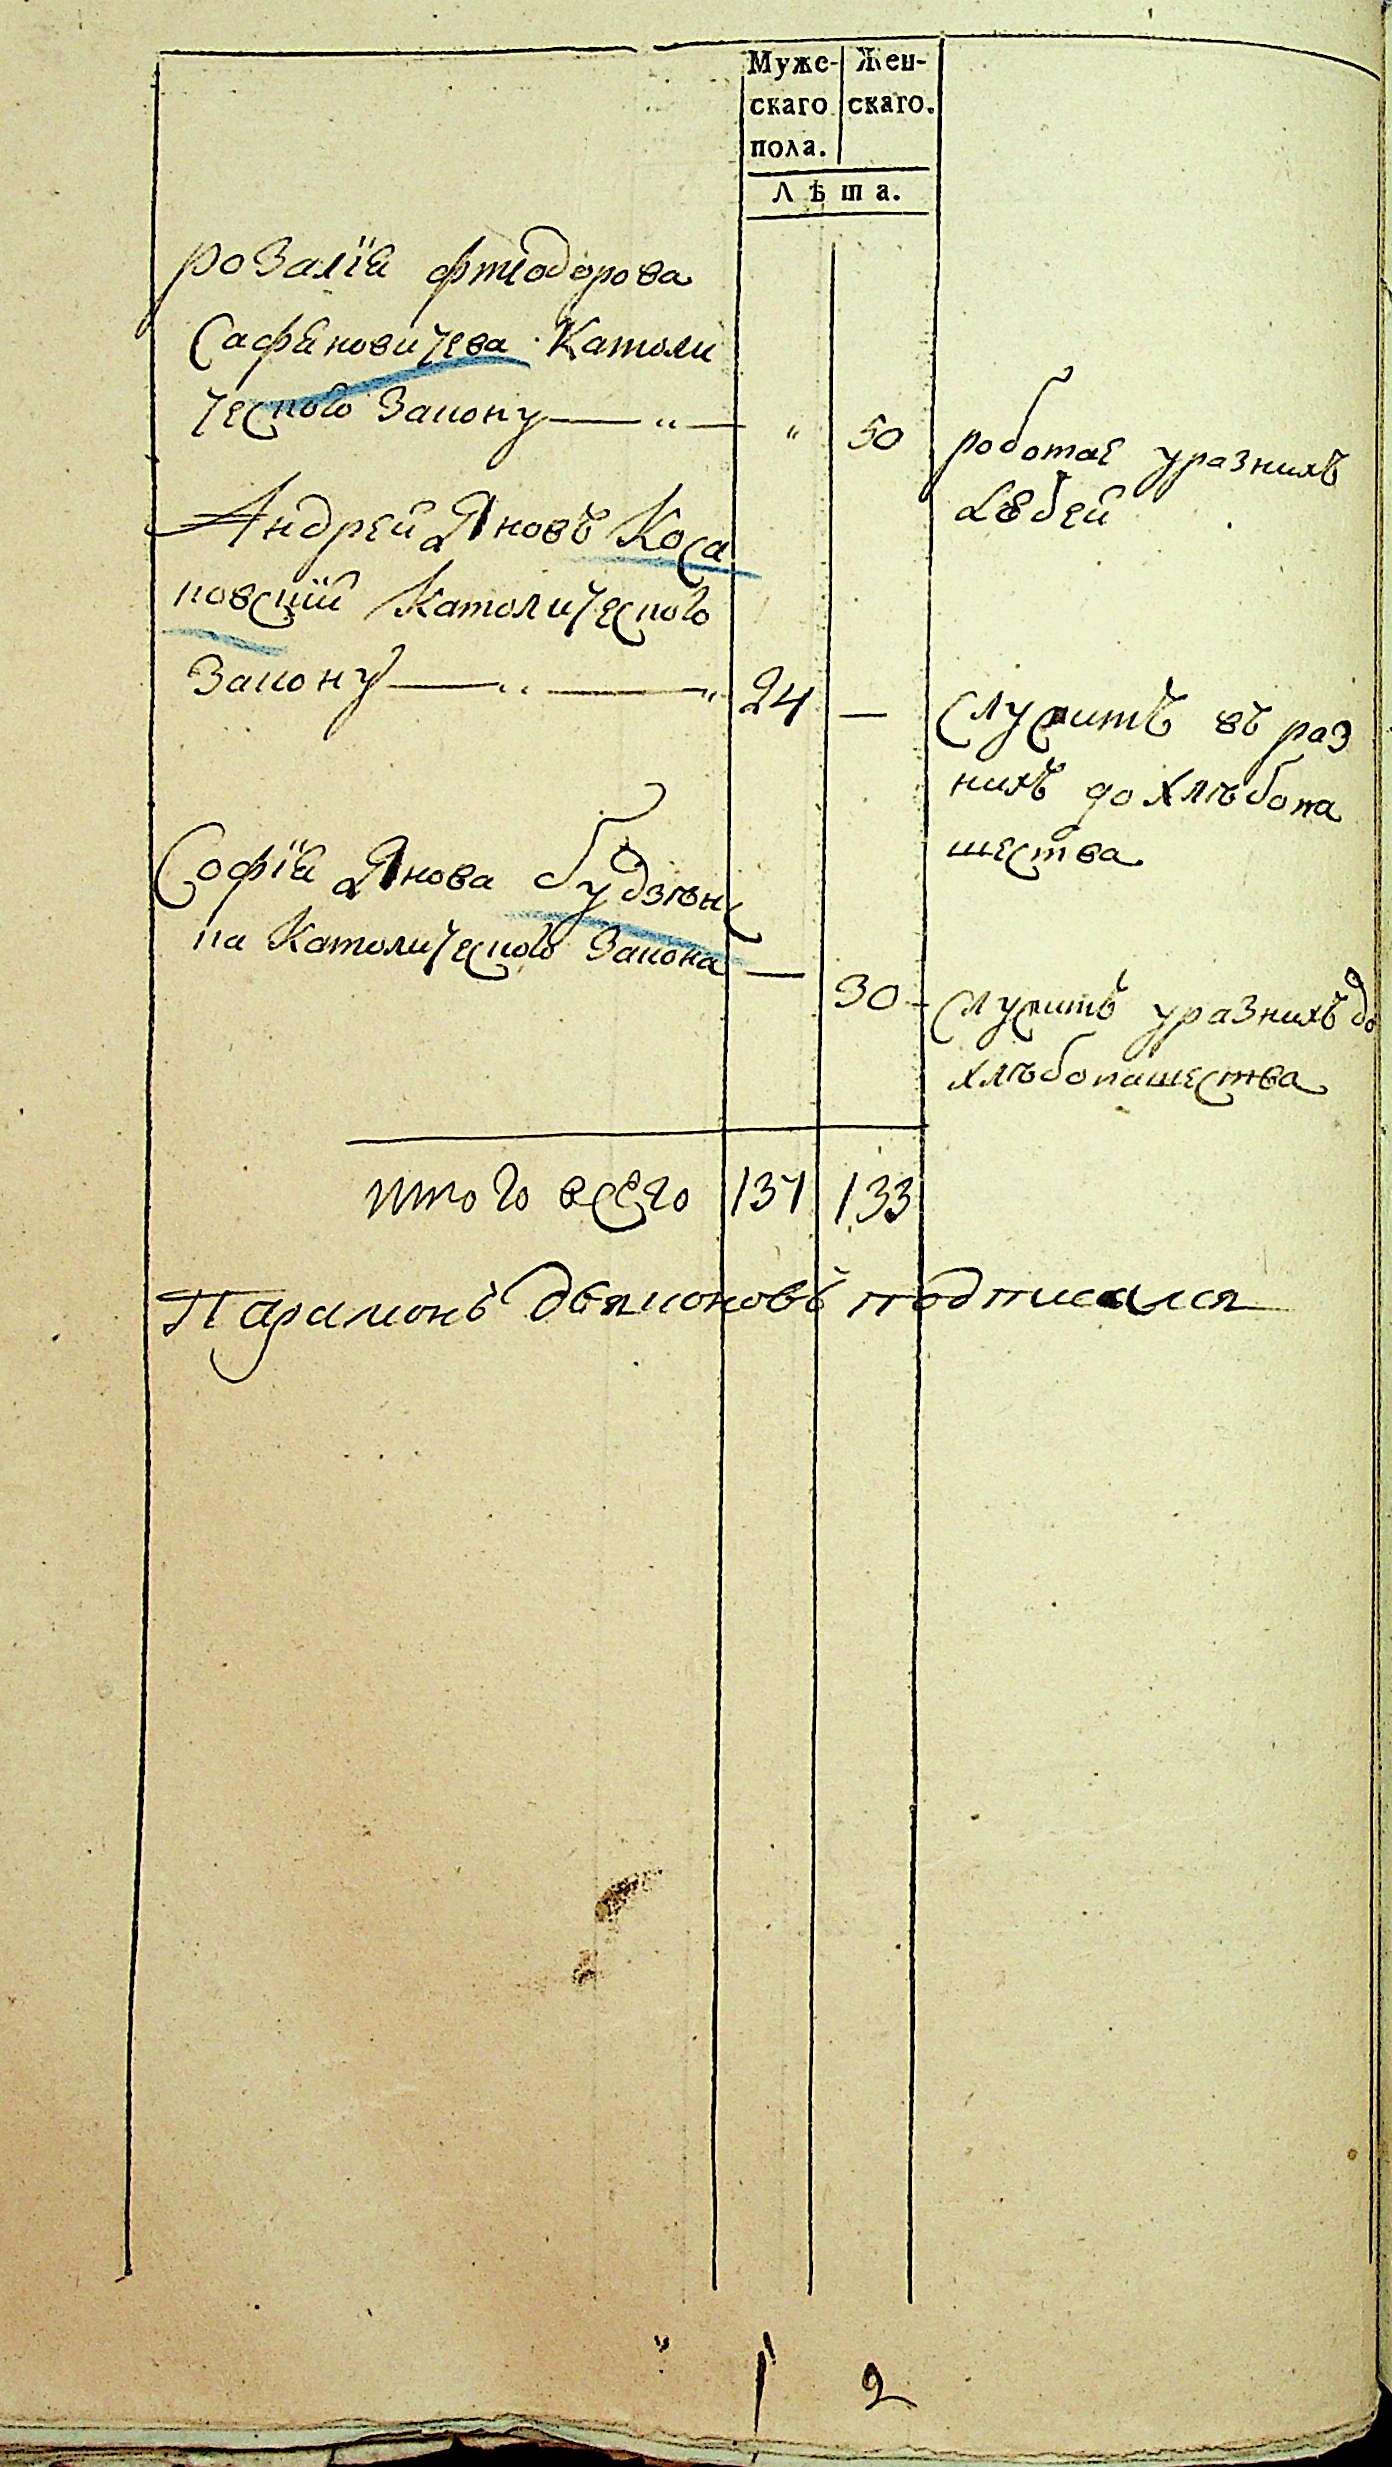 Муже- Жен-
скаго скаго.
пола.
Лѣта.
розалїя фтіодорова
Сафяновичева Католи
ческого Закону — „ — „ 50 роботае уразнихъ
людей
Андрей Яновъ Коса
ковскїй Католического
Закону — „ — „ 24 — служитъ въ раз
нихъ до хлѣбопа
шества
Софїя Янова Будзѣнс
ка Католического Закона — 30 служитъ уразнихъ до
хлѣбопашества
итого всего 131 133
Парамонъ Дьяконовъ подписался
„ 1 2